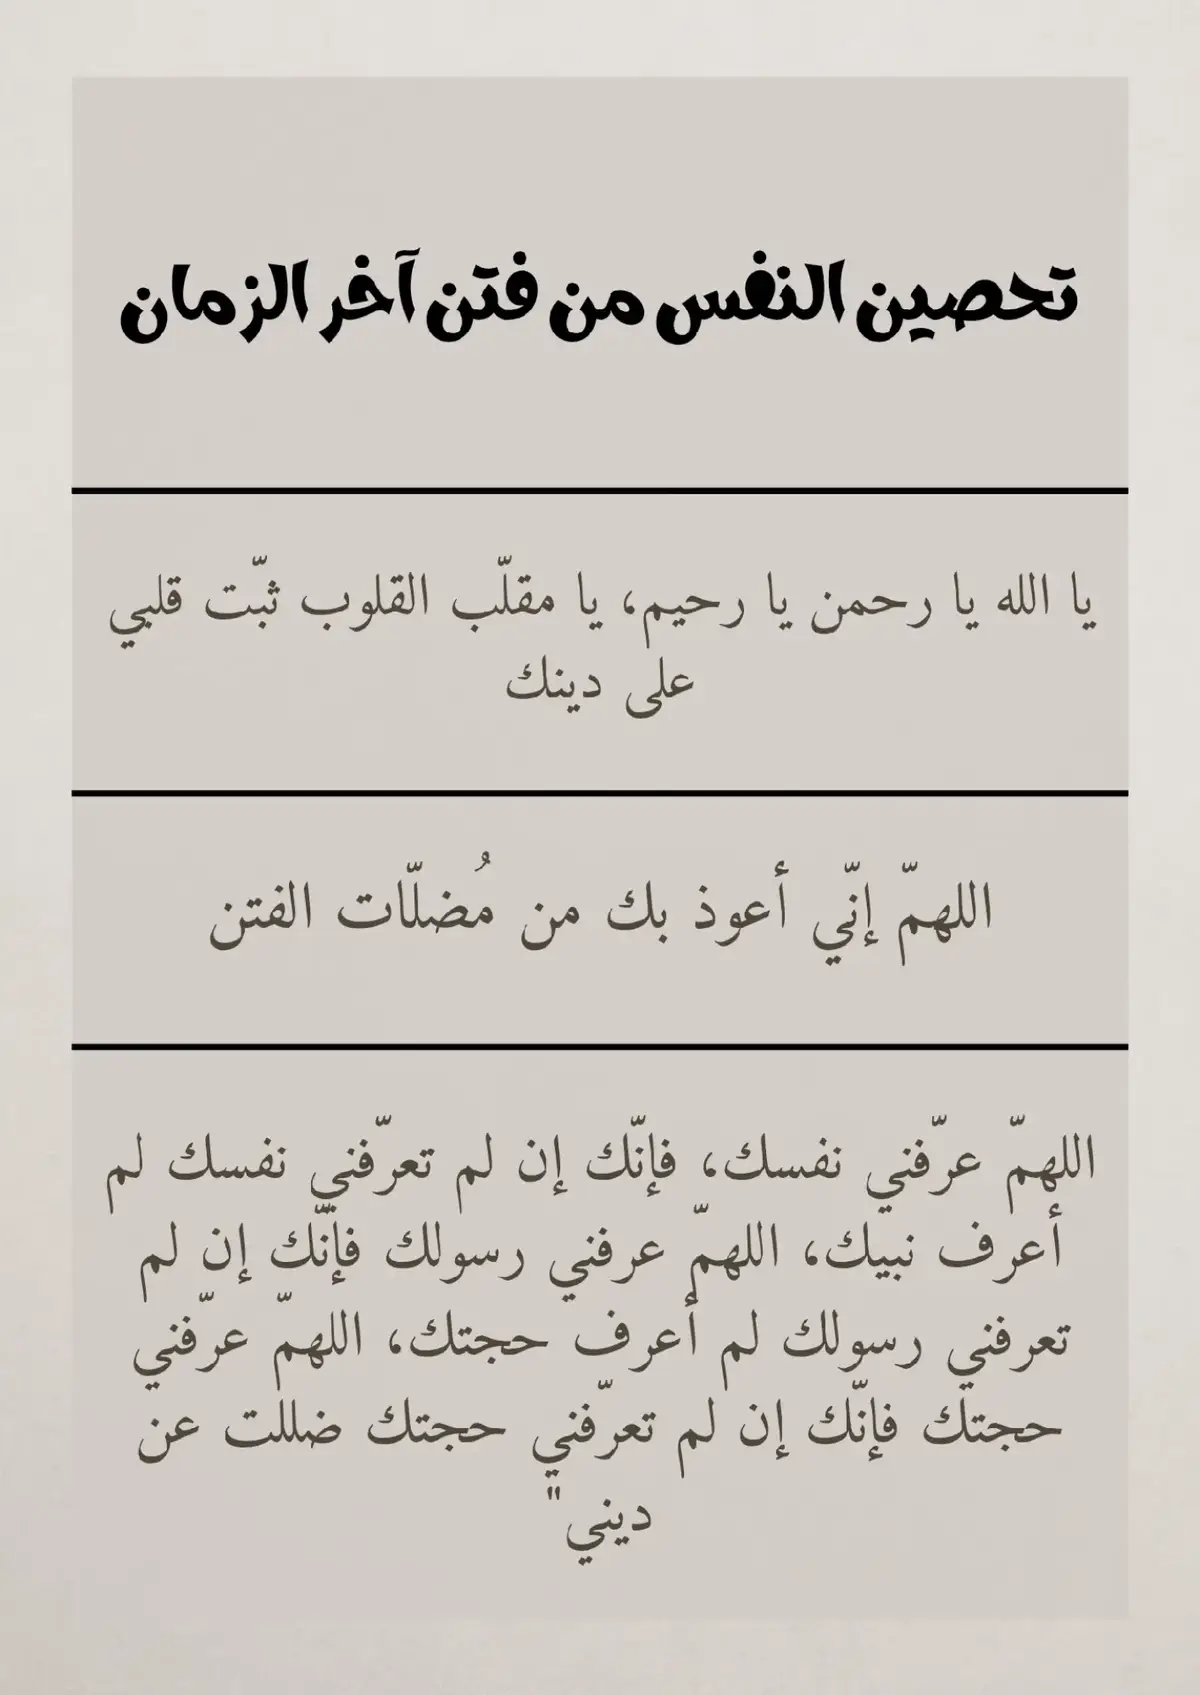 تحصين النفس من فتن آخر الزمان
يا الله يا رحمن يا رحيم، يا مقلّب القلوب ثبّت قلبي
على دينك
اللهمّ إنّي أعوذ بك من مُضلّات الفتن
اللهمّ عرّفني نفسك، فإنّك إن لم تعرّفني نفسك لم
أعرف نبيك، اللهمّ عرفني رسولك فإنّك إن لم
تعرفني رسولك لم أعرف حجتك، اللهمّ عرّفني
حجتك فإنّك إن لم تعرّفني حجتك ضللت عن
ديني"